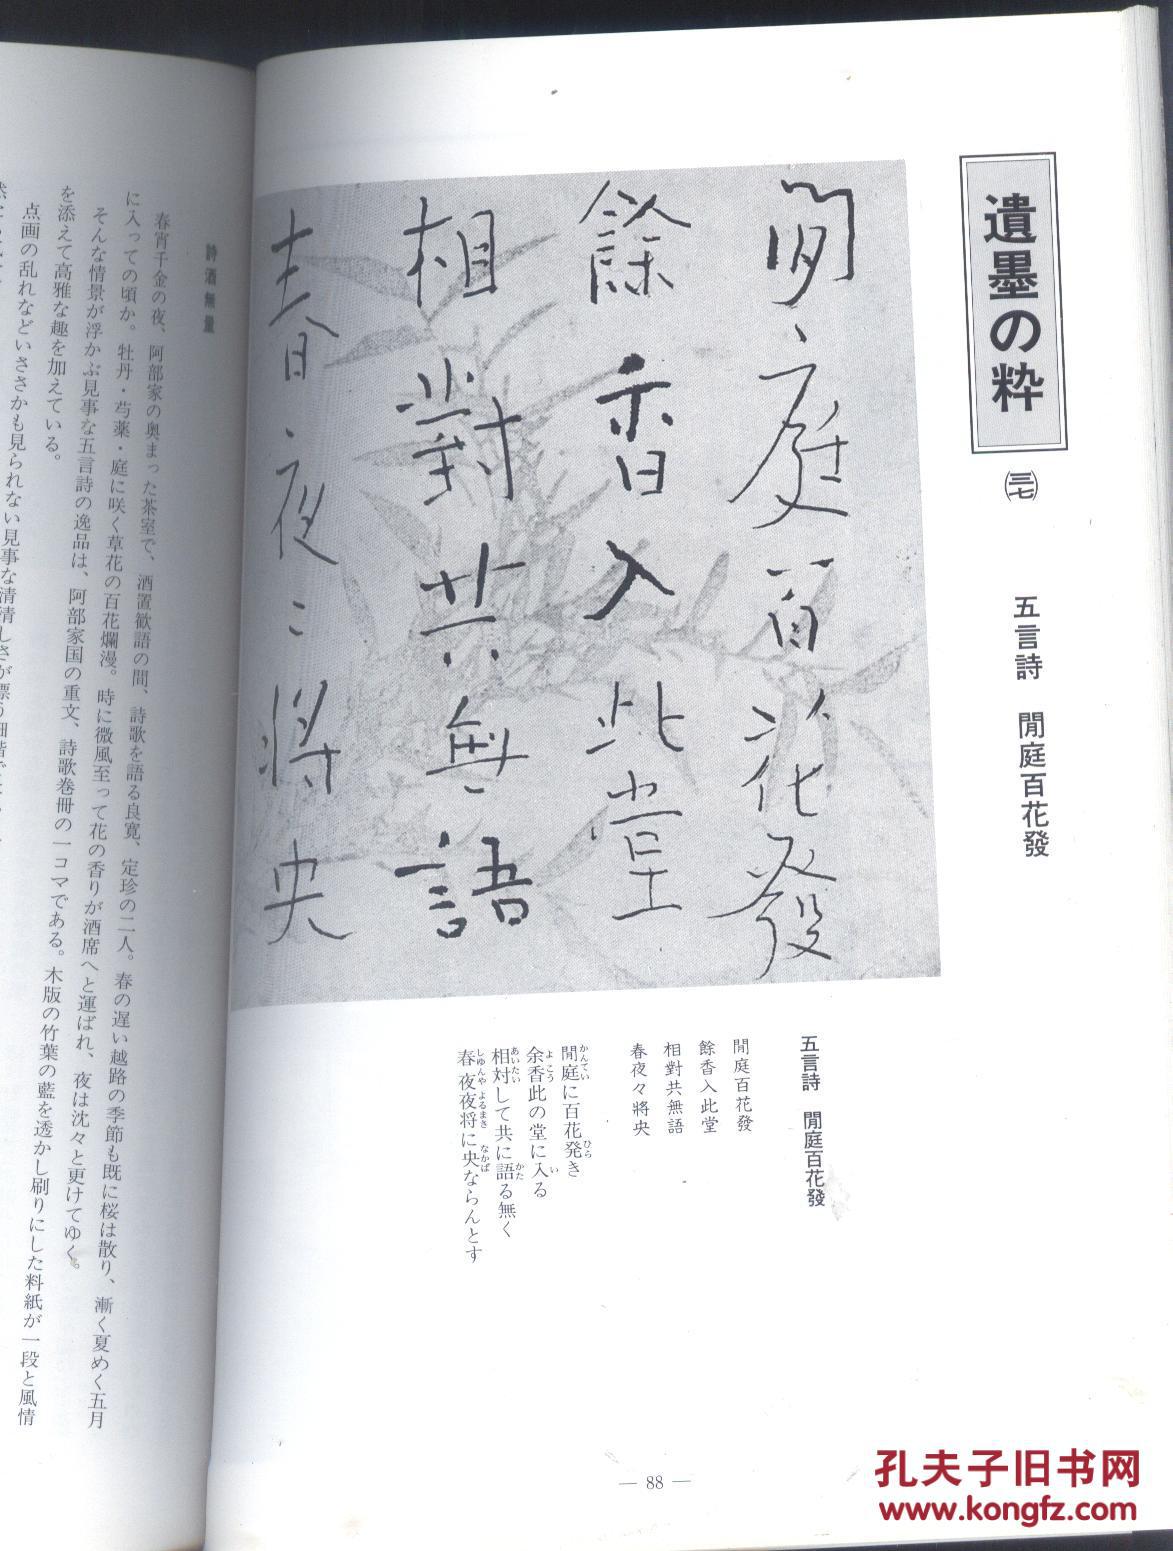 遺墨の粋
㊲
五言詩 閒庭百花發
閒庭百花發
餘香入此堂
相對共無語
春夜〻將央
五言詩 閒庭百花發
閒庭百花發
餘香入此堂
相對共無語
春夜々將央
閒庭に百花発き
余香此の堂に入る
相対して共に語る無く
春夜夜将に央ならんとす
— 88 —
詩酒無量
春宵千金の夜、阿部家の奥まった茶室で、酒置歓語の間、詩歌を語る良寛、定珍の二人。春の遅い越路の季節も既に桜は散り、漸く夏めく五月
に入っての頃か。牡丹・芍薬・庭に咲く草花の百花爛漫。時に微風至って花の香りが酒席へと運ばれ、夜は沈々と更けてゆく。
そんな情景が浮かぶ見事な五言詩の逸品は、阿部家国の重文、詩歌巻冊の一コマである。木版の竹葉の藍を透かし刷りにした料紙が一段と風情
を添えて高雅な趣を加えている。
点画の乱れなどいささかも見られない見事な清清しさが漂う
孔夫子旧书网
www.kongfz.com